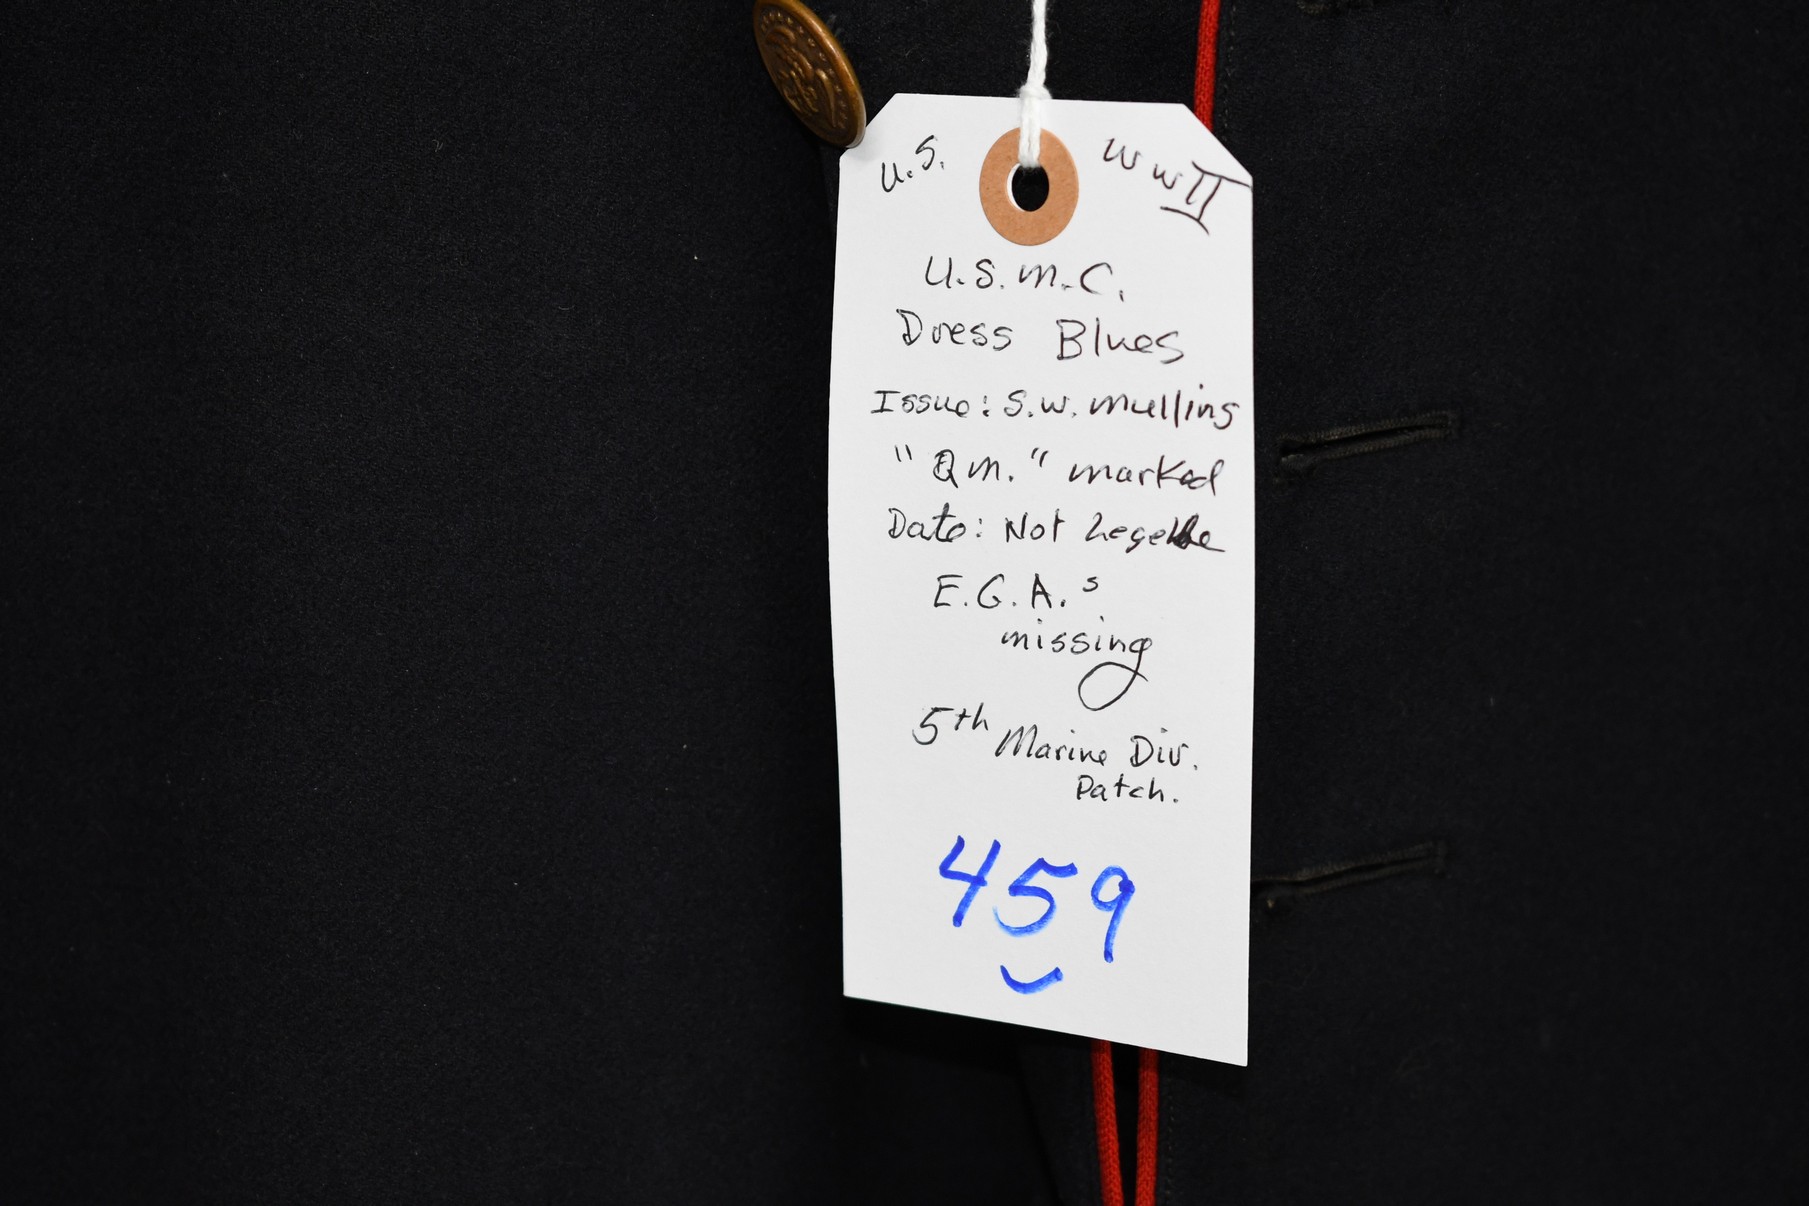 U.S.
WWII
U.S.M.C.
Dress Blues
Issue: S.W. Mullins
"Qm." marked
Date: Not Legeble
E.G.A.s
missing
5th Marine Div.
Patch.
459